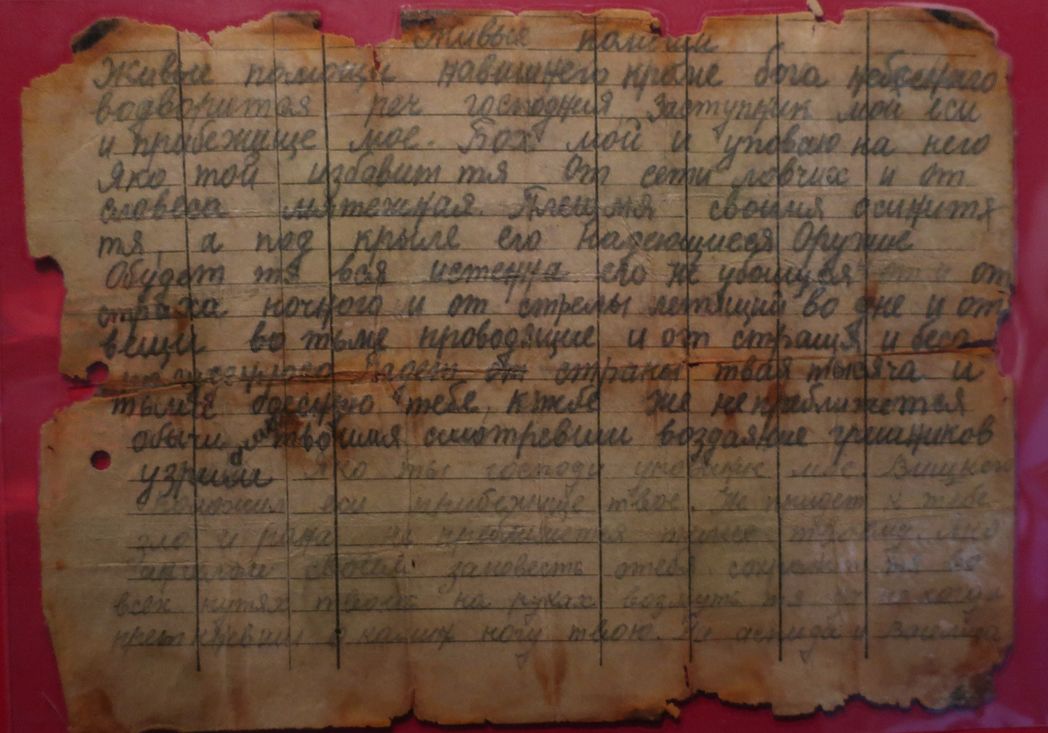 Живые помощи
Живые помощи навишнего кроме бога небесного
водворится реч господня, Заступник мой еси
и прибежище мое. Бох мой и уповаю на него
Яко той избавит тя От сети ловчих и от
словеса мятежная. Плещмя своимя осинитя
тя, а под крыле его надеющиеся Оружие
Обудет тя вся истенна его не убоишся от и от
страха ночного и от стрелы летящия во дне и от
вещи во тьме проводящие и от стращя и бес
страны твая тысяча и
тьмя одесную тебе, к тебе же неприближется
обычи твоимя смотревши воздаяние грешников
узриши Яко ты господи упование мое. Вышнего
положил еси прибежище твое. Не придет к тебе
зло и рана не приближится телесе твоему. Яко
ангелом своим заповесть отебе сохранит тя во
всех путях твоих на руках возмуть тя
ногу твою. На аспида и Василиска